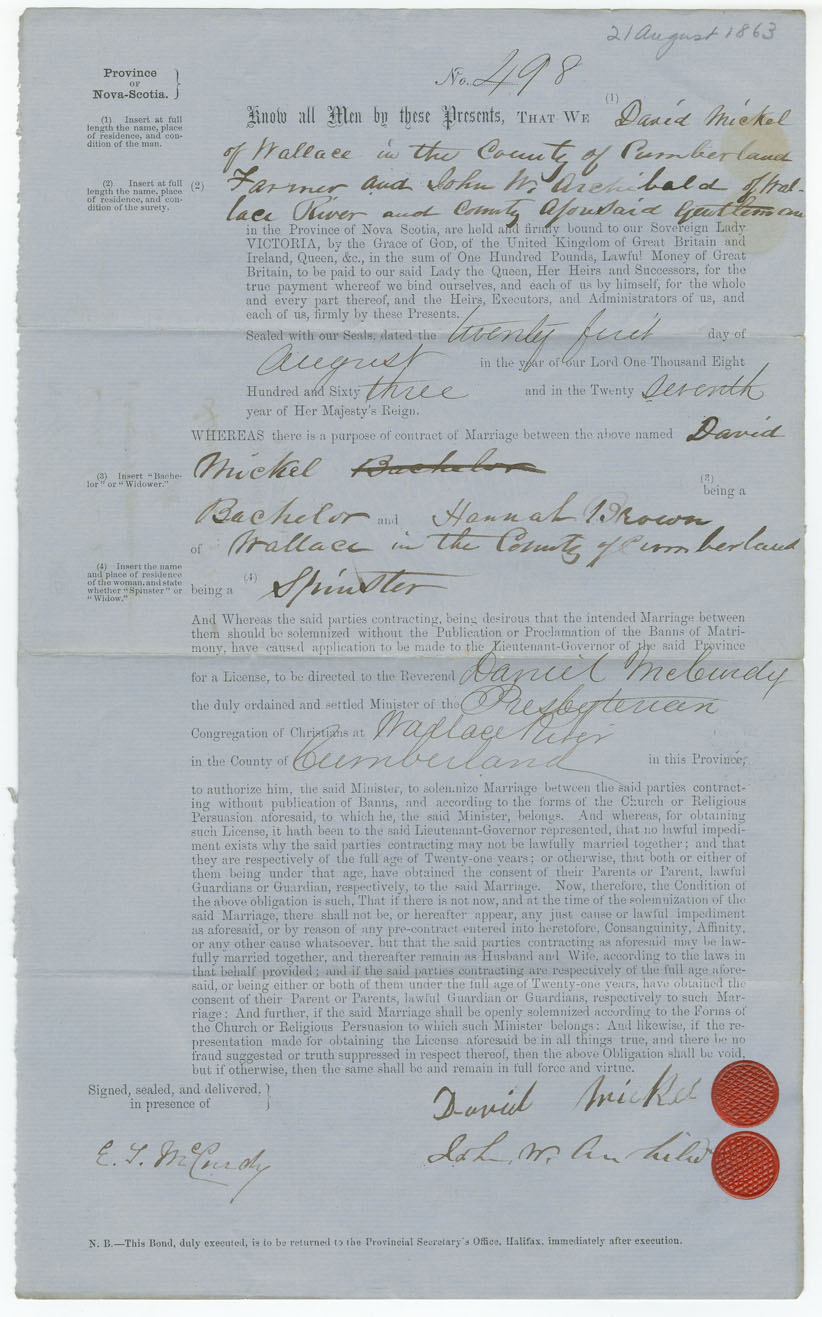 21 August 1863
Province
OF
Nova-Scotia. }
No. 498
(1) Insert at full
length the name, place
of residence, and con-
dition of the man.
Know all Men by these Presents, THAT WE (1) David Mickel
of Wallace in the County of Cumberland
(2) Insert at full
length the name, place
of residence, and con-
dition of the surety.
(2) Farmer and John W. Archibald of Wal-
lace River and County aforesaid Gentleman
in the Province of Nova Scotia, are held and firmly bound to our Sovereign Lady
VICTORIA, by the Grace of God, of the United Kingdom of Great Britain and
Ireland, Queen, &c., in the sum of One Hundred Pounds, Lawful Money of Great
Britain, to be paid to our said Lady the Queen, Her Heirs and Successors, for the
true payment whereof we bind ourselves, and each of us by himself, for the whole
and every part thereof, and the Heirs, Executors, and Administrators of us, and
each of us, firmly by these Presents.
Sealed with our Seals, dated the twenty first day of
August in the year of our Lord One Thousand Eight
Hundred and Sixty three and in the Twenty Seventh
year of Her Majesty's Reign.
WHEREAS there is a purpose of contract of Marriage between the above named David
Mickel Bachelor
(3) Insert "Bache-
lor" or "Widower."
(3)
being a
Bachelor and Hannah Brown
of Wallace in the County of Cumberland
(4) Insert the name
and place of residence
of the woman, and state
whether "Spinster" or
"Widow."
being a (4) Spinster
And Whereas the said parties contracting, being desirous that the intended Marriage between
them should be solemnized without the Publication or Proclamation of the Banns of Matri-
mony, have caused application to be made to the Lieutenant-Governor of the said Province
for a License, to be directed to the Reverend Daniel McCurdy
the duly ordained and settled Minister of the Presbyterian
Congregation of Christians at Wallace River
in the County of Cumberland in this Province,
to authorize him, the said Minister, to solemnize Marriage between the said parties contract-
ing without publication of Banns, and according to the forms of the Church or Religious
Persuasion aforesaid, to which he, the said Minister, belongs. And whereas, for obtaining
such License, it hath been to the said Lieutenant-Governor represented, that no lawful impedi-
ment exists why the said parties contracting may not be lawfully married together; and that
they are respectively of the full age of Twenty-one years; or otherwise, that both or either of
them being under that age, have obtained the consent of their Parents or Parent, lawful
Guardians or Guardian, respectively, to the said Marriage. Now, therefore, the Condition of
the above obligation is such, That if there is not now, and at the time of the solemnization of the
said Marriage, there shall not be, or hereafter appear, any just cause or lawful impediment
as aforesaid, or by reason of any pre-contract entered into heretofore, Consanguinity, Affinity,
or any other cause whatsoever, but that the said parties contracting as aforesaid may be law-
fully married together, and thereafter remain as Husband and Wife, according to the laws in
that behalf provided; and if the said parties contracting are respectively of the full age afore-
said, or being either or both of them under the full age of Twenty-one years, have obtained the
consent of their Parent or Parents, lawful Guardian or Guardians, respectively to such Mar-
riage: And further, if the said Marriage shall be openly solemnized according to the Forms of
the Church or Religious Persuasion to which such Minister belongs: And likewise, if the re-
presentation made for obtaining the License aforesaid be in all things true, and there be no
fraud suggested or truth suppressed in respect thereof, then the above Obligation shall be void,
but if otherwise, then the same shall be and remain in full force and virtue.
Signed, sealed, and delivered, }
in presence of
David Mickel
E. T. McCurdy
John W. Archibald
N. B.—This Bond, duly executed, is to be returned to the Provincial Secretary's Office, Halifax, immediately after execution.